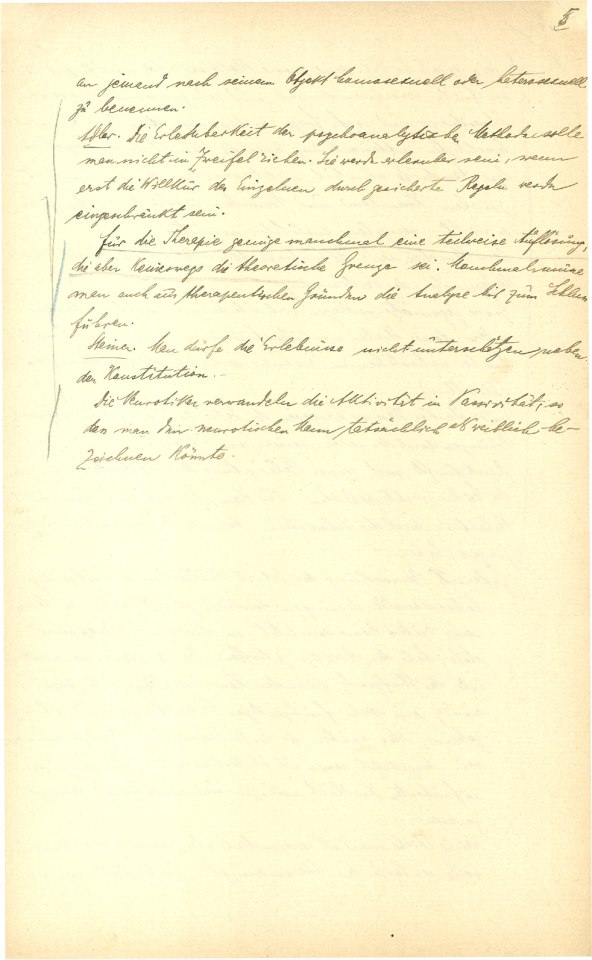 5
an jemand nach seinem Objekt homosexuell oder heterosexuell
zu benennen.
Adler. Die Erlernbarkeit der psychoanalytischen Methode solle
man nicht in Zweifel ziehen. Sie werde erlernbar sein, wenn
erst die Willkür des Einzelnen durch gesicherte Regeln werde
eingeschränkt sein.
Für die Therapie genüge manchmal eine teilweise Auflösung,
die aber keineswegs die theoretische Grenze sei. Manchmal müsse
man auch aus therapeutischen Gründen die Analyse bis zum Schluss
führen.
Steiner. Man dürfe die Erlebnisse nicht unterschätzen neben
der Konstitution.–
Die Neurotiker verwandeln die Aktivität in Passivität, so
dass man den neurotischen Mann tatsächlich als weiblich be-
zeichnen könnte.